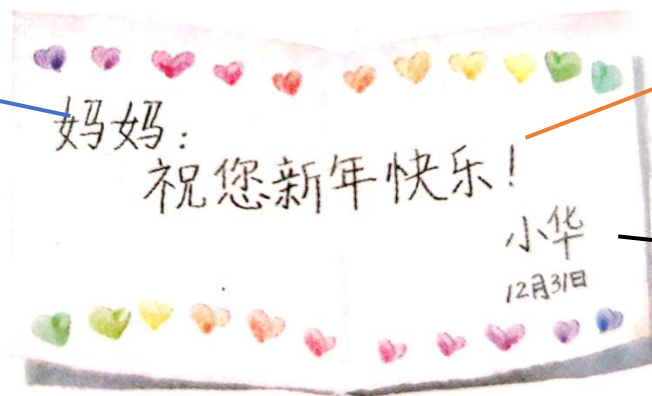 妈妈：
祝您新年快乐！
小华
12月31日